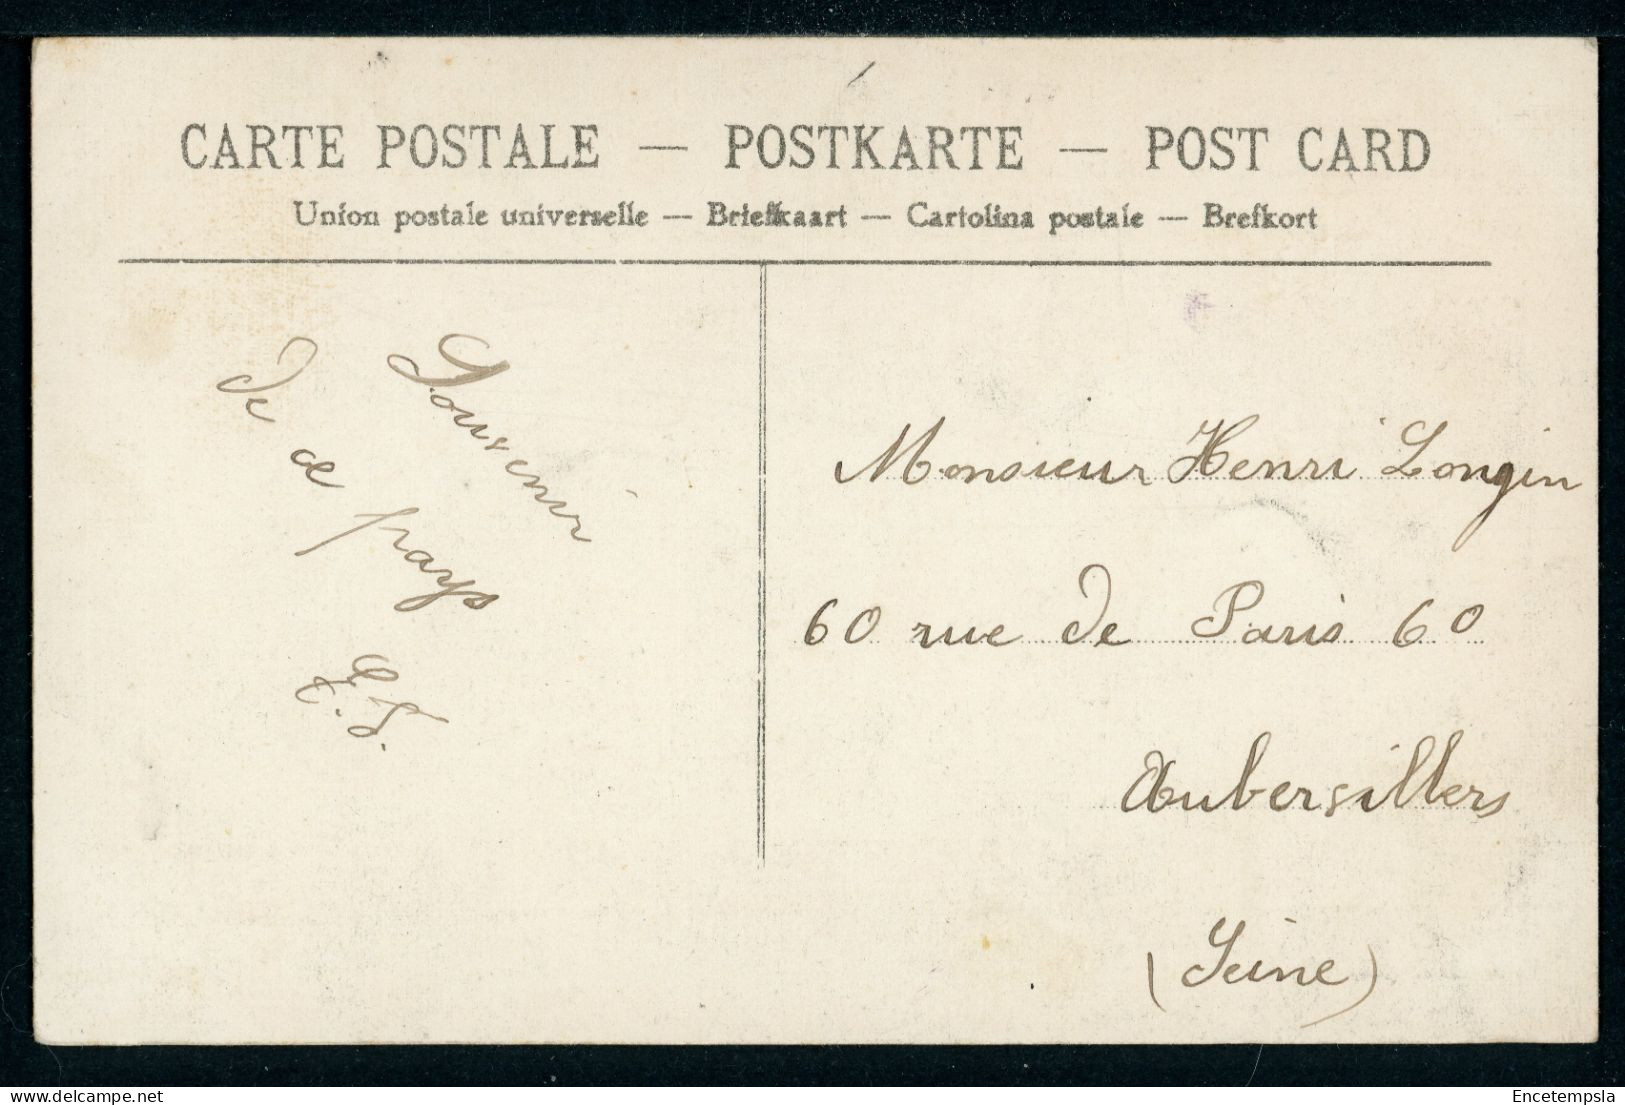 CARTE POSTALE — POSTKARTE — POST CARD
Union postale universelle — Briefkaart — Cartolina postale — Brefkort
Souvenir
de ce pays
E.S.
Monsieur Henri Longin
60 rue de Paris 60
Aubersillers
(Seine)
delcampe.net
Encetempsla